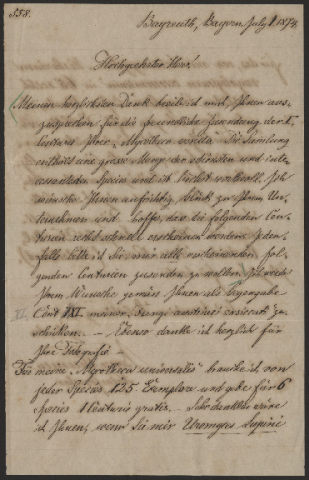 558.
Bayreuth, Bayern July 1 1874.
Hochgeehrter Herr!
Meinen herzlichsten Dank beeile ich mich Ihnen aus-
zusprechen für die freundliche Zusendung der I.
Centurie Ihrer „Die Samlung
enthält eine grosse Menge der schönsten und inte-
ressantesten Species und ist höchst werthvoll. Ich
wünsche Ihnen aufrichtig Glück zu Ihrem Un-
ternehmen und hoffe, dass die folgenden Cen-
turien recht schnell erscheinen werden. Jeden-
falls bitte ich die mir alle erscheinenden fol-
genden Centurien zusenden zu wollen. Ich werde
Ihrem Wunsche gemäss Ihnen als Gegengabe
Cent meiner „Fungi austriaci
schicken. — Ebenso danke ich herzlich für
Ihre Fotografie —
Für meine „Mycotheca universalis" brauche ich von
jeder Species 125 Exemplare und gebe für 6
Species 1 Centurie gratis. — Sehr dankbar wäre
ich Ihnen, wenn Sie mir Uromyces Lupini